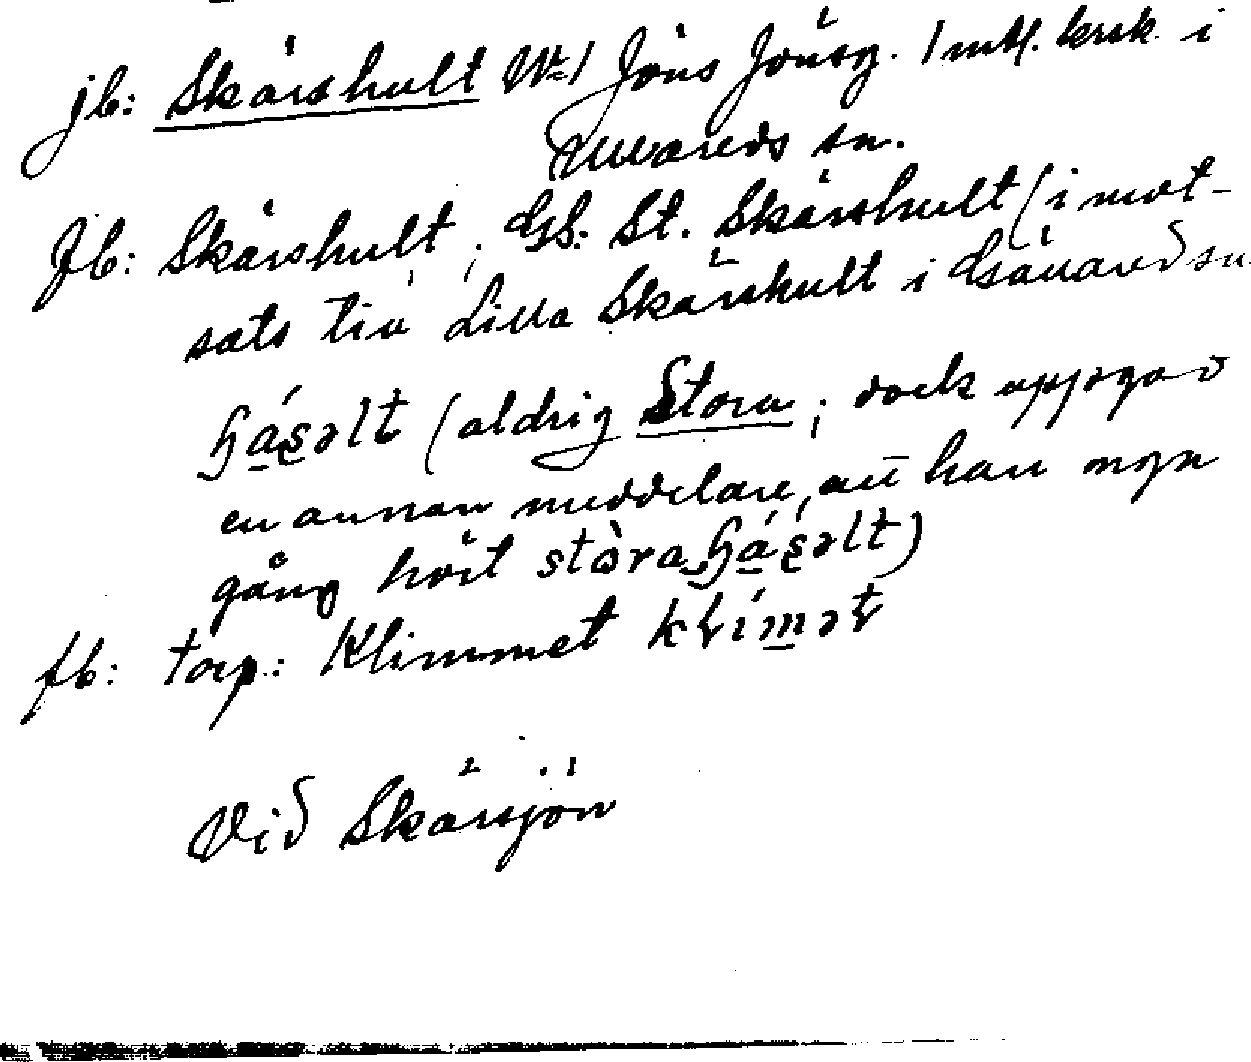 jb: Skärshult No 1 Jöns Jönsg. 1 mtl. krsk i
Ullareds sn.
Jb: Skärshult; GS: St. Skärshult (i mot-
sats till Lilla Skärshult i Gällared sn.
(aldrig Stora; dock uppgav
en annan meddelare, att han någon
gång hört stòra
fb: torp: Klimmet
Vid Skärsjön